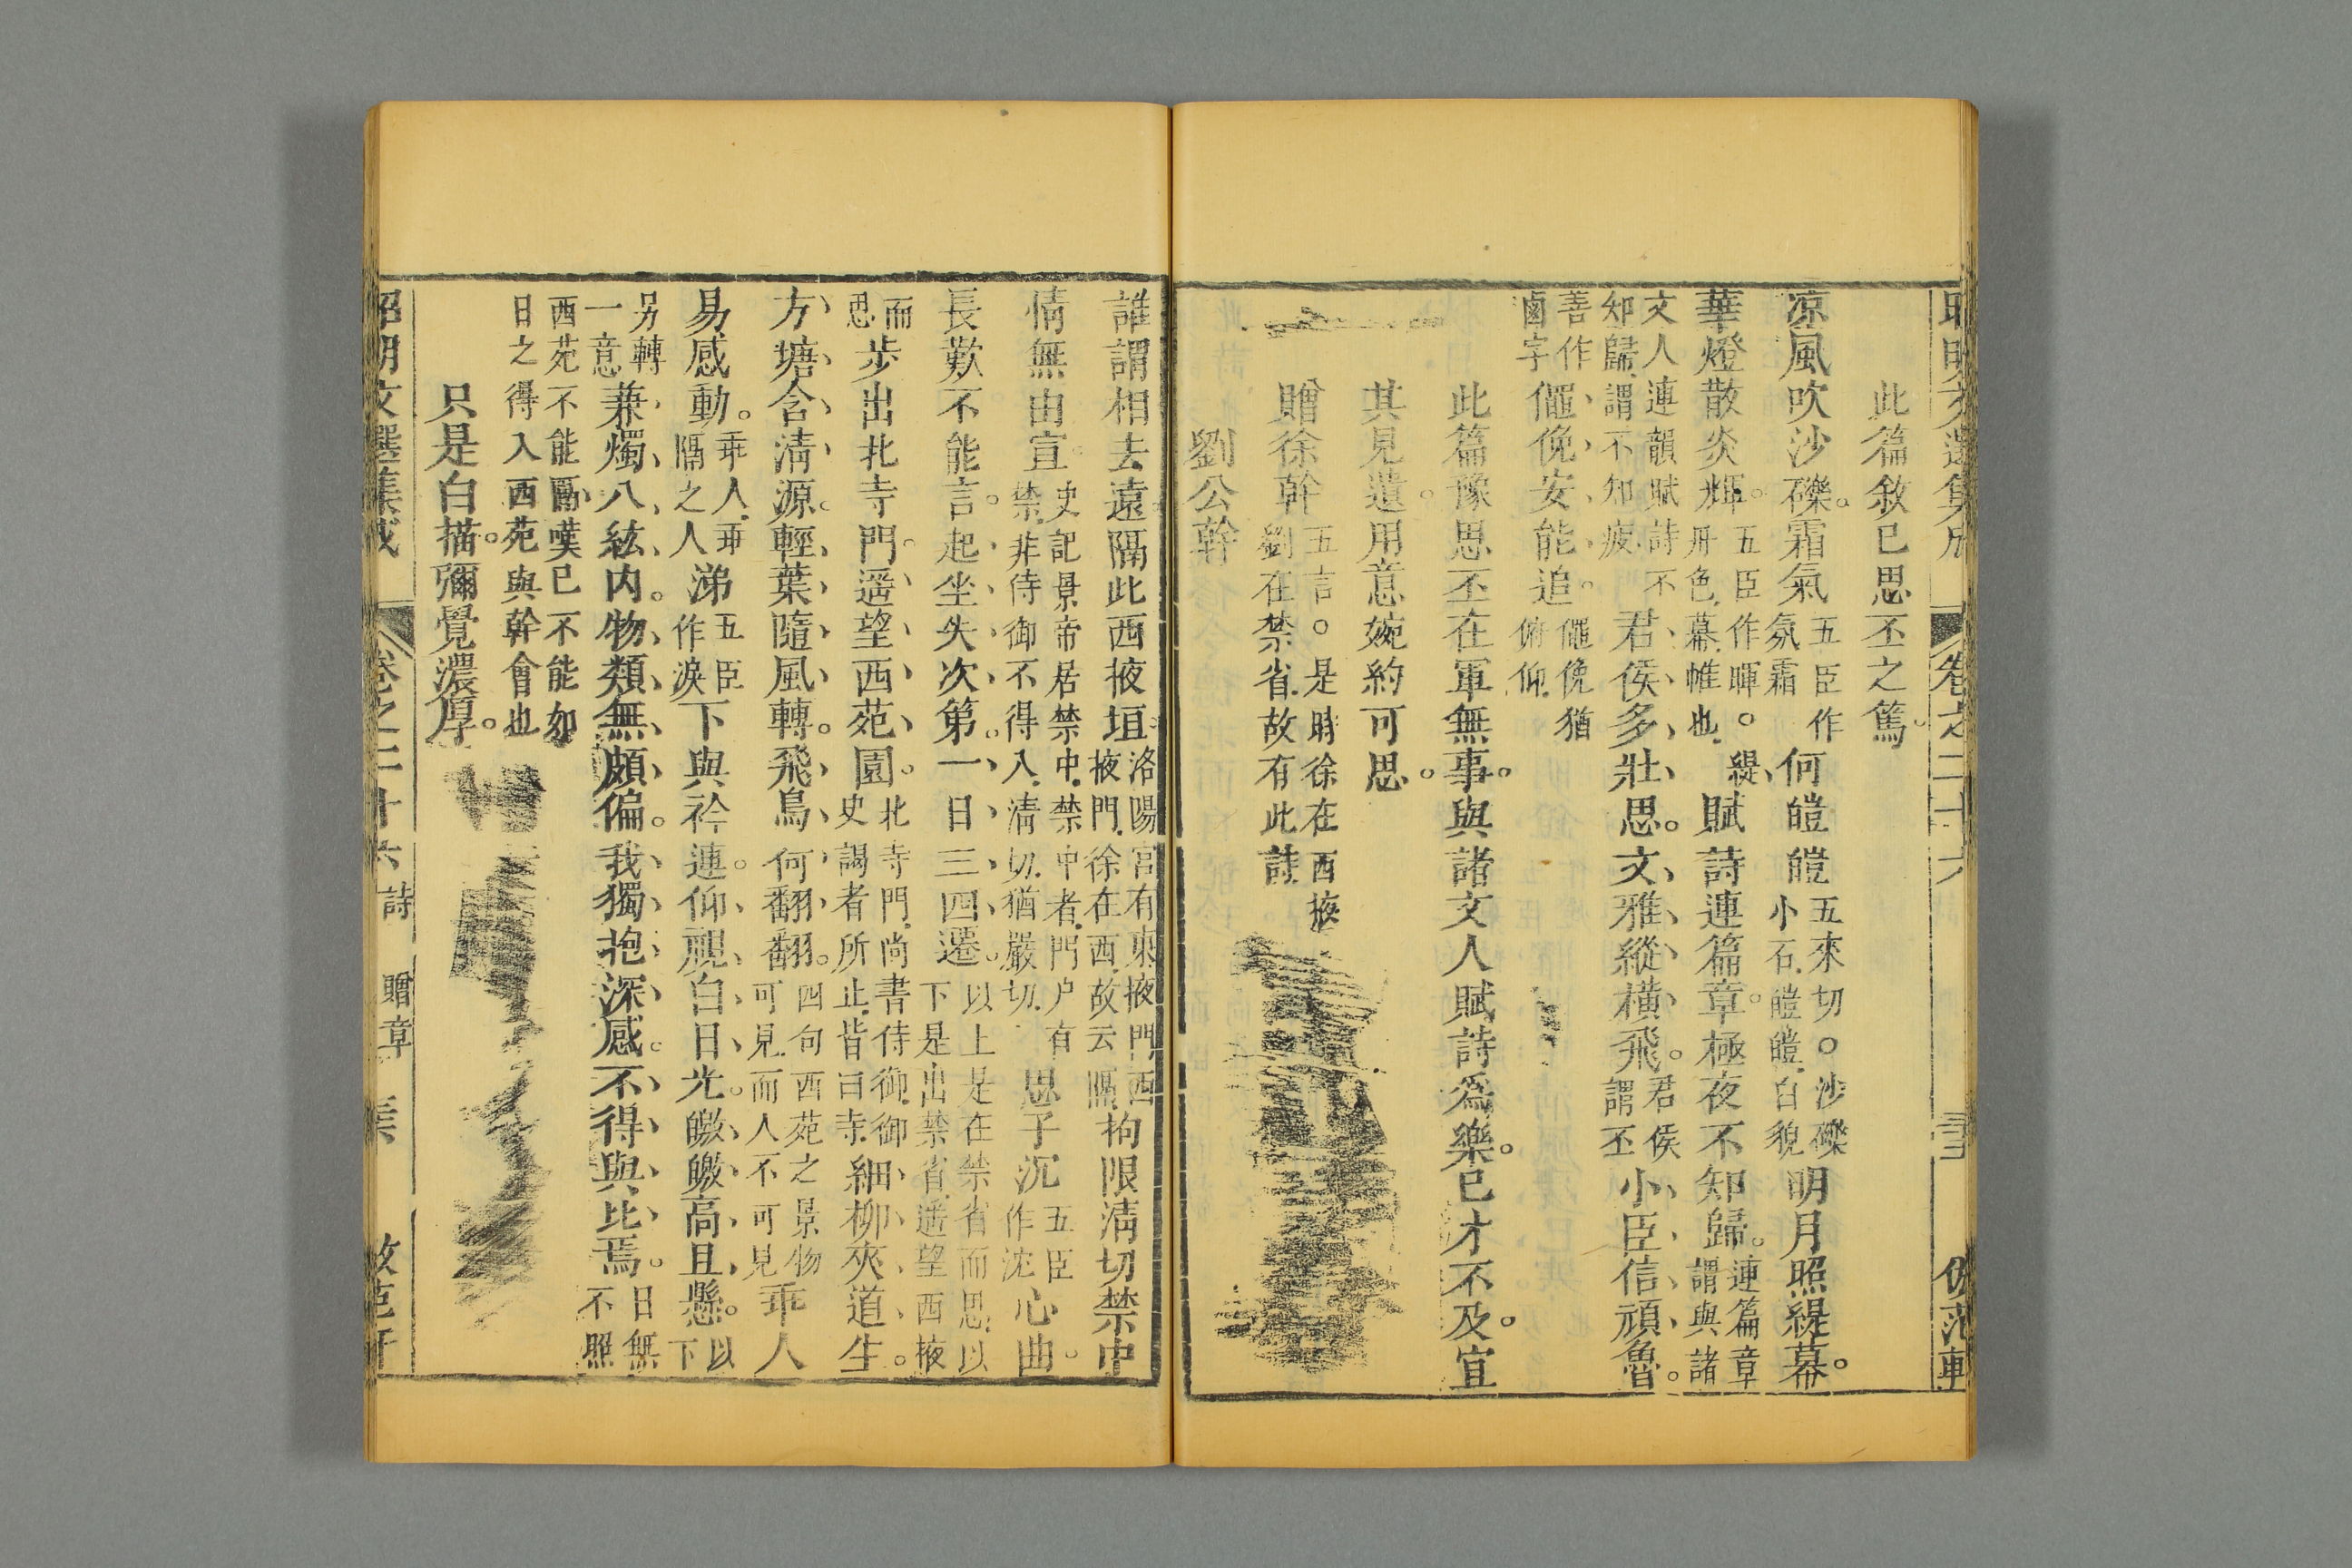 昭明文選集成 卷之二十六 倣范軒
此篇敘已思丕之篤
凉風吹沙礫。霜氣五臣作氛霜何皚皚五來切○沙礫小石皚皚白貌明月照緹幕。
華燈散炎輝。五臣作暉○緹丹色幕帷也賦詩連篇章。極夜不知歸。連篇章謂與諸
文人連韻賦詩不知歸謂不知疲君侯多壯思。文雅縱橫飛。君侯謂丕小臣信頑魯。
善作鹵字僶俛安能追。僶俛猶俯仰
此篇豫思丕在軍無事。與諸文人賦詩爲樂。已才不及。宜
其見遺。用意婉約可思。
贈徐幹五言○是時徐在西掖劉在禁省故有此詩
劉公幹
誰謂相去遠隔此西掖垣。洛陽宮有東掖門西掖門徐在西故云隔拘限清切禁中
情無由宣。史記景帝居禁中禁中者門户有禁非侍御不得入清切猶嚴切思子沉五臣作沈心曲。
長歎不能言。起坐失次第。一日三四遷。以上是在禁省而思以下是出禁省遥望西掖
而思步出北寺門。遥望西苑園。北寺門尚書侍御御史謁者所止皆曰寺細柳夾道生。
方塘含清源。輕葉隨風轉。飛鳥何翻翻。四句西苑之景物可見而人不可見乖人
易感動。乖人乖隔之人涕五臣作淚下與衿連。仰視白日光。皦皦高且懸。以下
另轉一意兼燭八紘内。物類無頗偏。我獨抱深感。不得與比焉。日無不照
西苑不能隔嘆已不能如日之得入西苑與幹會也
只是白描。彌覺濃厚。
昭明文選集成 卷之二十六 詩 贈章 倣范軒